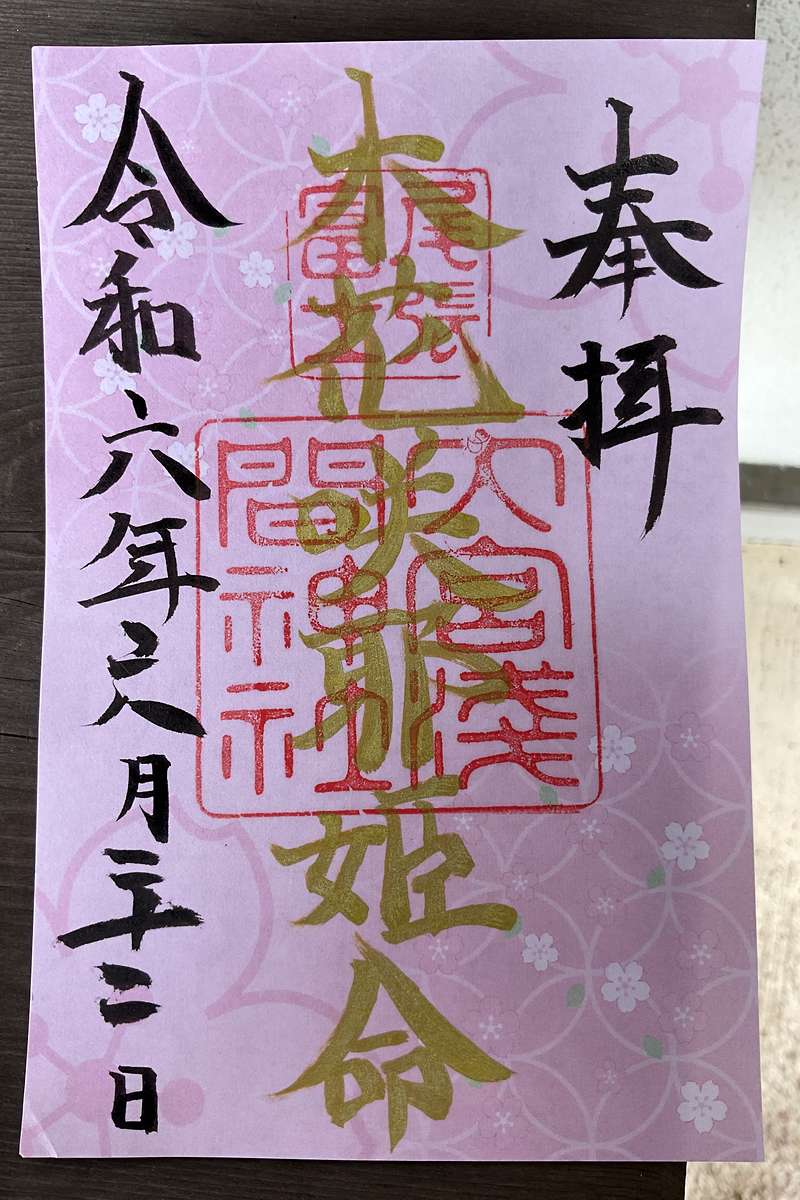 奉拝
木花咲耶姫命
令和六年月二十二日
尾張
富士
大宮浅
間神社